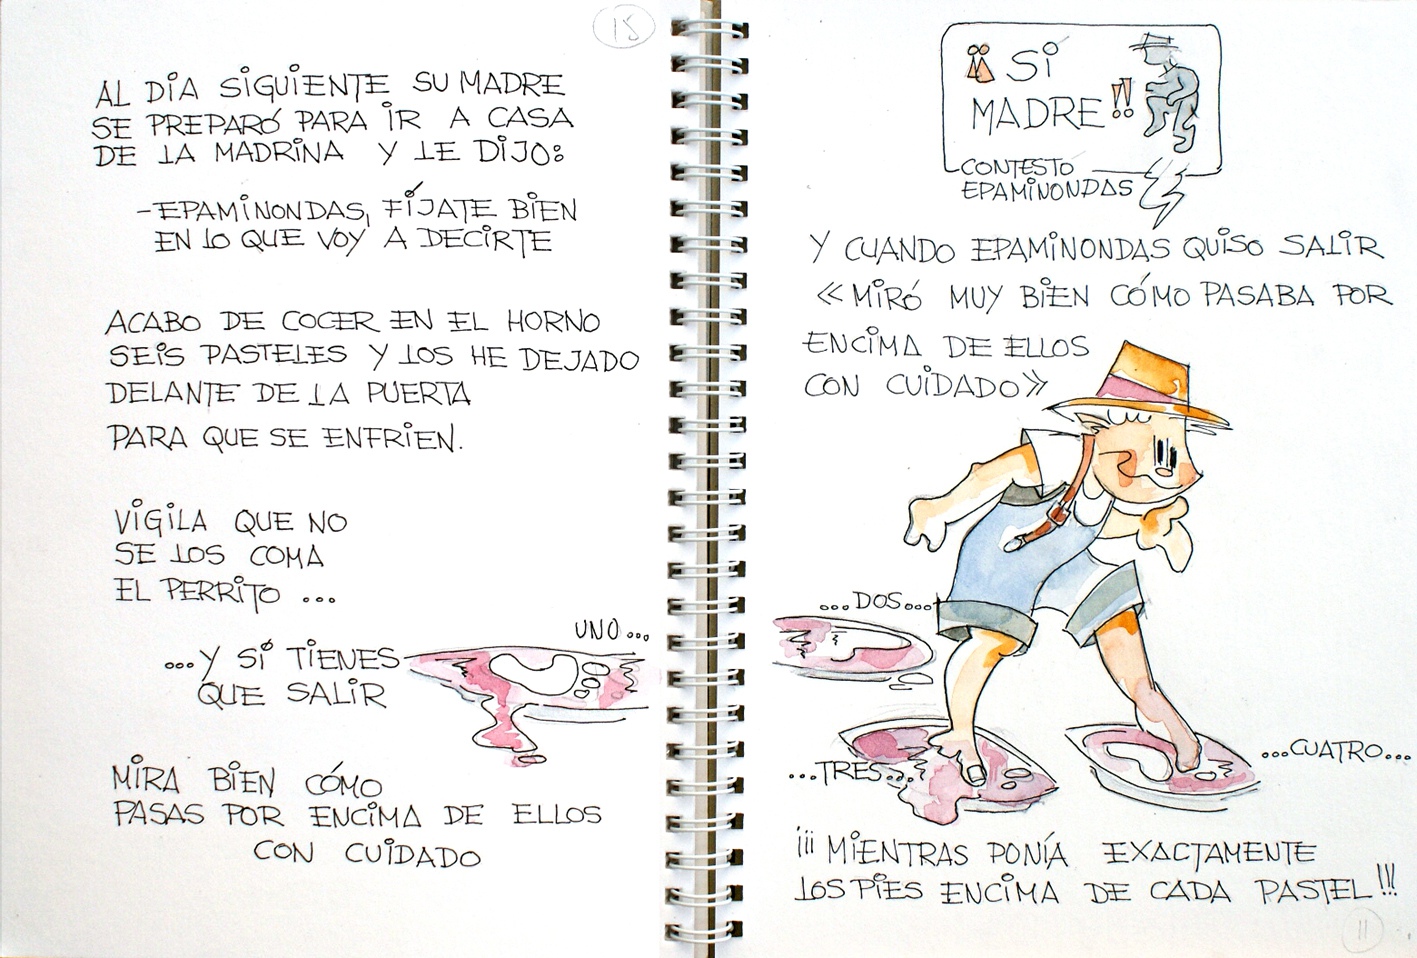 15
AL DÍA SIGUIENTE SU MADRE
SE PREPARÓ PARA IR A CASA
DE LA MADRINA Y LE DIJO:
-EPAMINONDAS, FÍJATE BIEN
EN LO QUE VOY A DECIRTE
ACABO DE COCER EN EL HORNO
SEIS PASTELES Y LOS HE DEJADO
DELANTE DE LA PUERTA
PARA QUE SE ENFRIEN.
VIGILA QUE NO
SE LOS COMA
EL PERRITO ...
...Y SÍ TIENES
QUE SALIR
UNO...
MIRA BIEN CÓMO
PASAS POR ENCIMA DE ELLOS
CON CUIDADO
¡¡ SÍ
MADRE!!
CONTESTÓ
EPAMINONDAS
Y CUANDO EPAMINONDAS QUISO SALIR
«MIRÓ MUY BIEN CÓMO PASABA POR
ENCIMA DE ELLOS
CON CUIDADO»
...DOS...
...TRES...
...CUATRO...
¡¡¡MIENTRAS PONÍA EXACTAMENTE
LOS PIES ENCIMA DE CADA PASTEL!!!
11